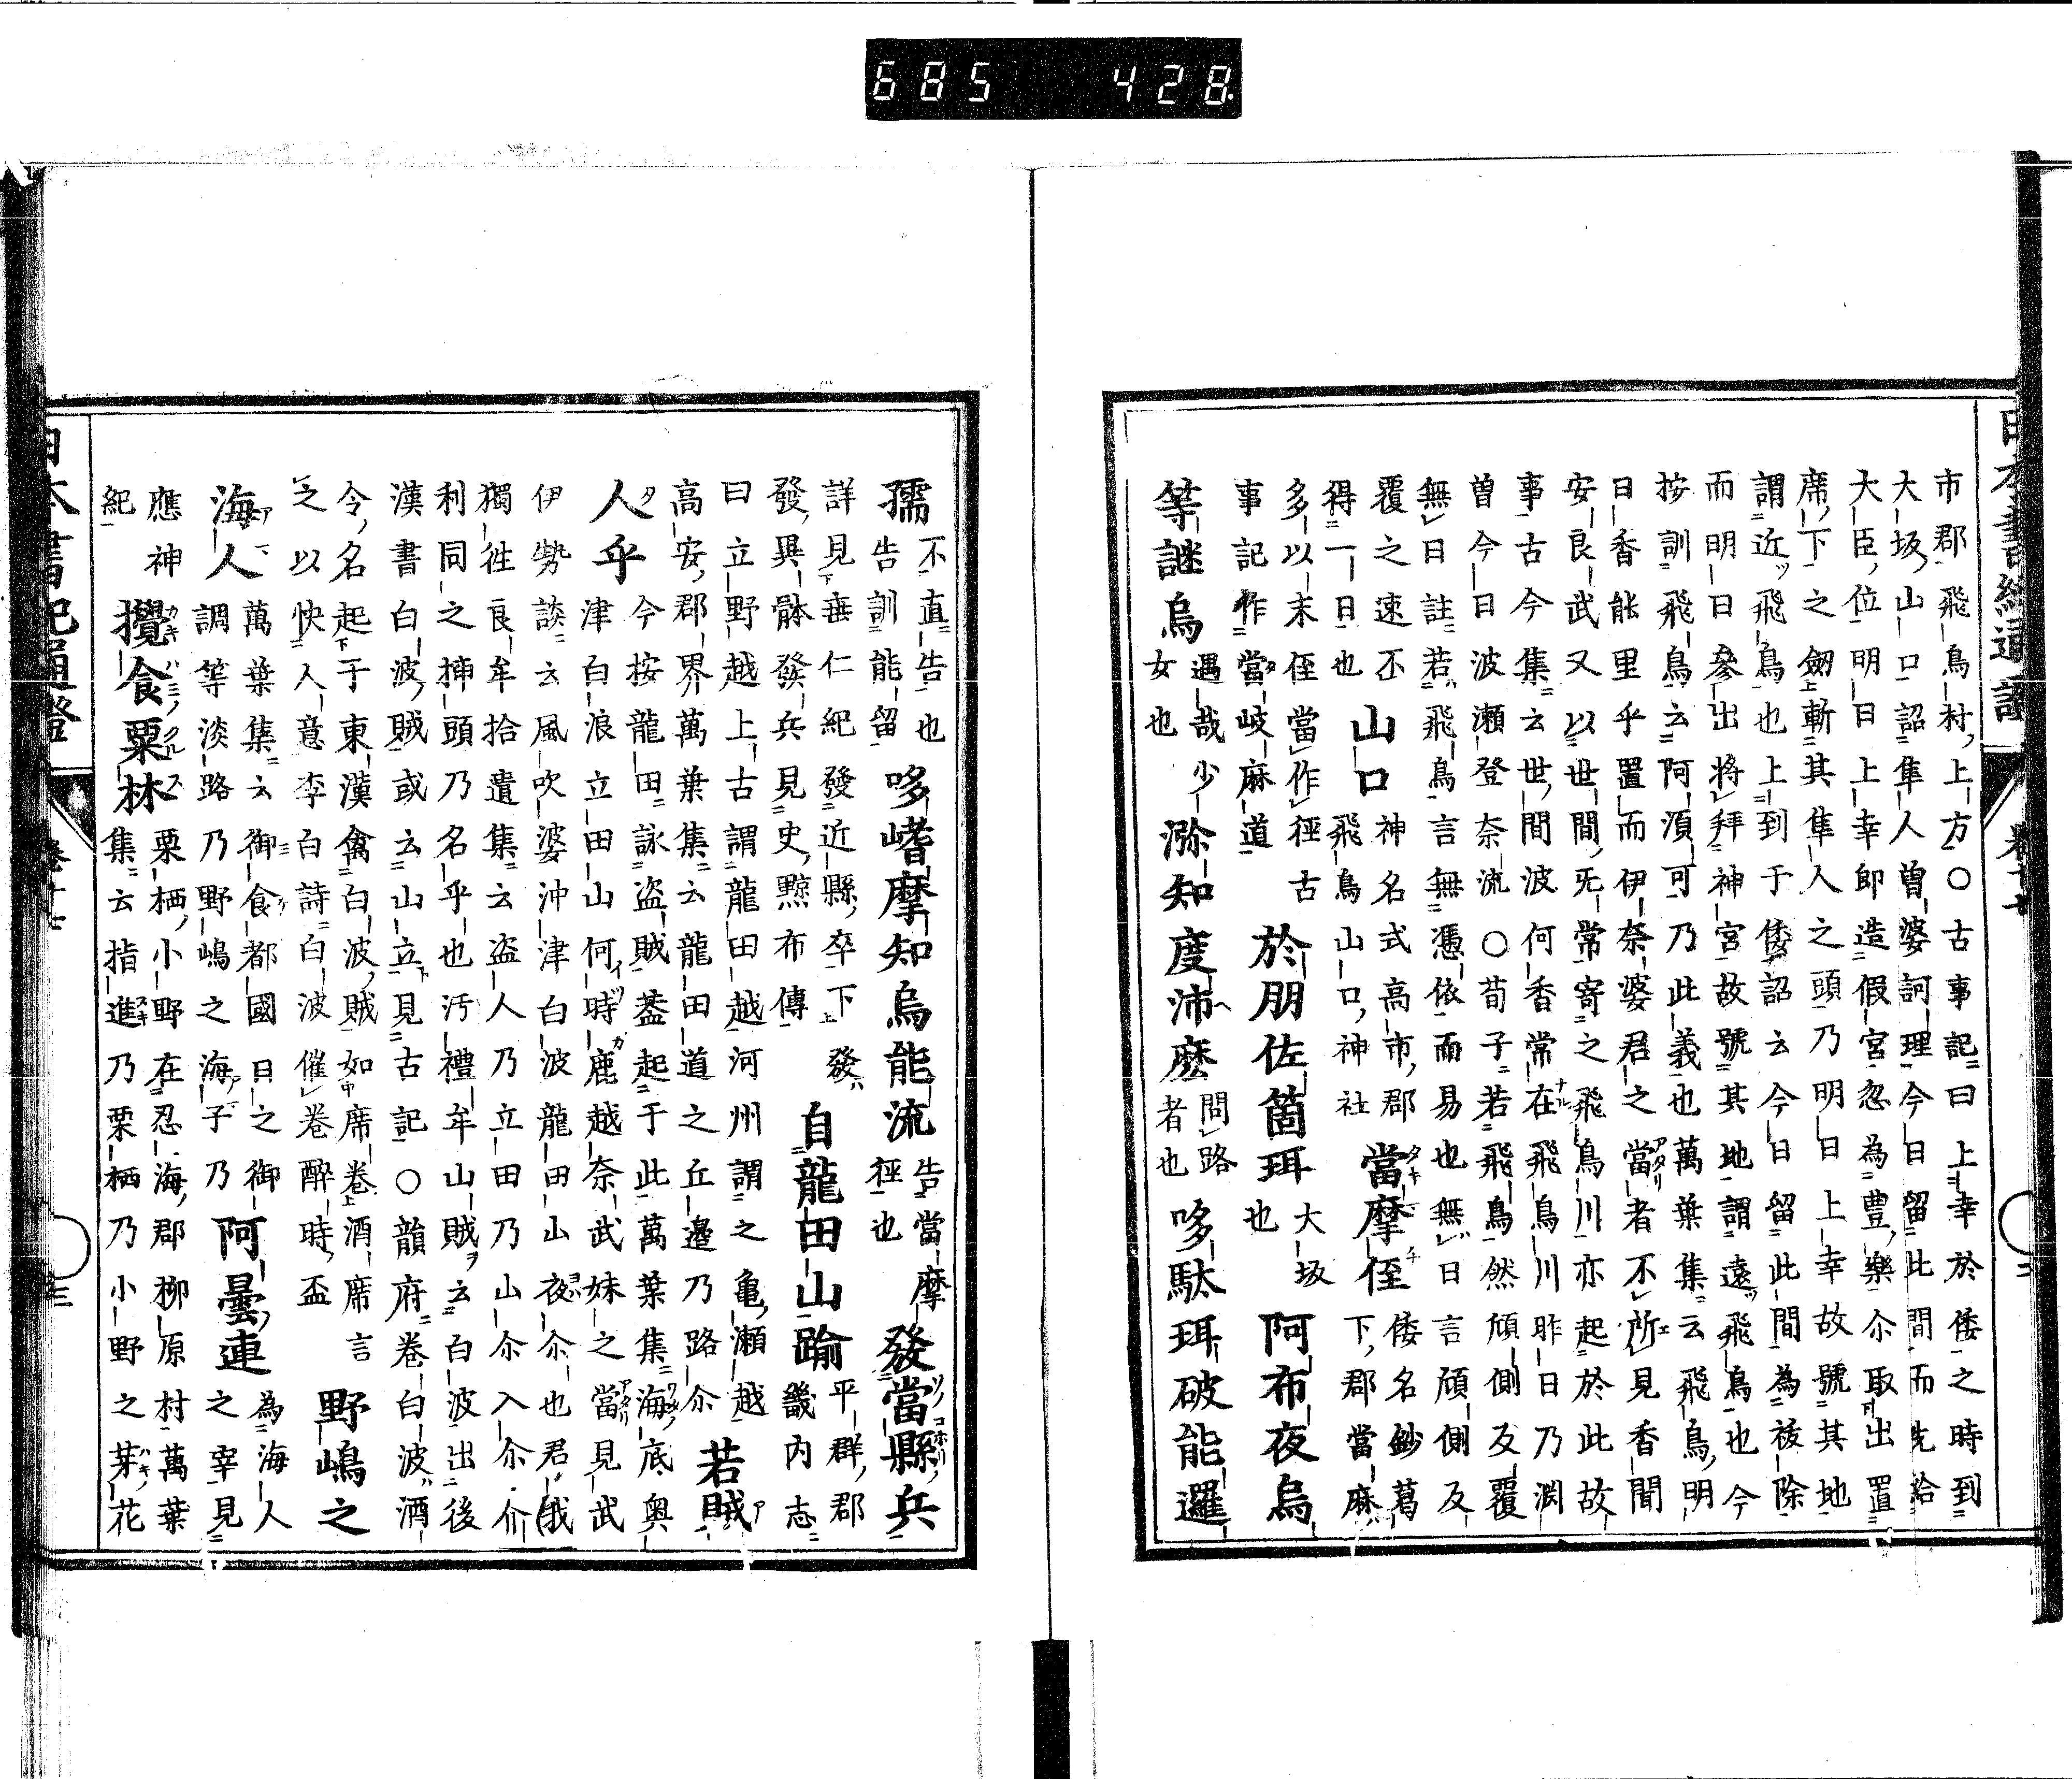 日本書紀通證 卷十七 二
市郡飛鳥村上方○古事記曰上幸於倭之時到
大坂山口詔隼人曽婆訶理今日留此間而先給
大臣位明日上幸即造假宮忽為豊樂尒取出置
席下之劔斬其隼人之頭乃明日上幸故號其地
謂近飛鳥也上到于倭詔云今日留此間為祓除
而明日參出將拜神宮故號其地謂遠飛鳥也今
按訓飛鳥云阿須可乃此義也萬葉集云飛鳥明
日香能里乎置而伊奈婆君之當者不所見香聞
安良武又以世間旡常寄之飛鳥川亦起於此故
事古今集云世間波何香常在飛鳥川昨日乃渕
曽今日波瀬登奈流○荀子若飛鳥然傾側反覆
無日註若飛鳥言無憑依而易也無日言頎側反
覆之速不得一日也 山口 神名式高市郡飛鳥山口神社 當摩侄 倭名鈔葛下郡當麻
多以末侄當作徑古事記作當岐麻道 於朋佐箇珥 大坂也 阿布夜烏
等謎烏 遇哉少女也 瀰知度沛麼 問路者也 哆駄珥破能邏
孺 不直告也告訓能留 哆嗜摩知烏能流 告當摩徑也 發當縣兵
詳見垂仁紀發近縣卒下發發異躰發兵見史黥布傳 自龍田山踰 平群郡畿内志
曰立野越上古謂龍田越河州謂之亀瀬越
高安郡界萬葉集云龍田道之丘邉乃路尒 若賊
人乎 今按龍田詠盗賊葢起于此萬葉集海底奥津白浪立田山何時鹿越奈武妹之當見武
伊勢談云風吹婆沖津白波龍田山夜尒也君俄
獨徃良牟拾遺集云盗人乃立田乃山尒入尒介
利同之挿頭乃名乎也汚禮牟山賊云白波出後
漢書白波賊或云山立見古記○韻府卷白波酒
令名起于東漢禽白波賊如席卷酒席言之以快人意李白詩白波催卷醉時盃 野嶋之
海人 萬葉集云御食都國日之御調等淡路乃野嶋之海子乃 阿曇連 為海人之宰見
應神紀 攪食栗林 栗栖小野在忍海郡柳原村萬葉集云指進乃栗栖乃小野之芽花
日本書紀通證 卷十七 三